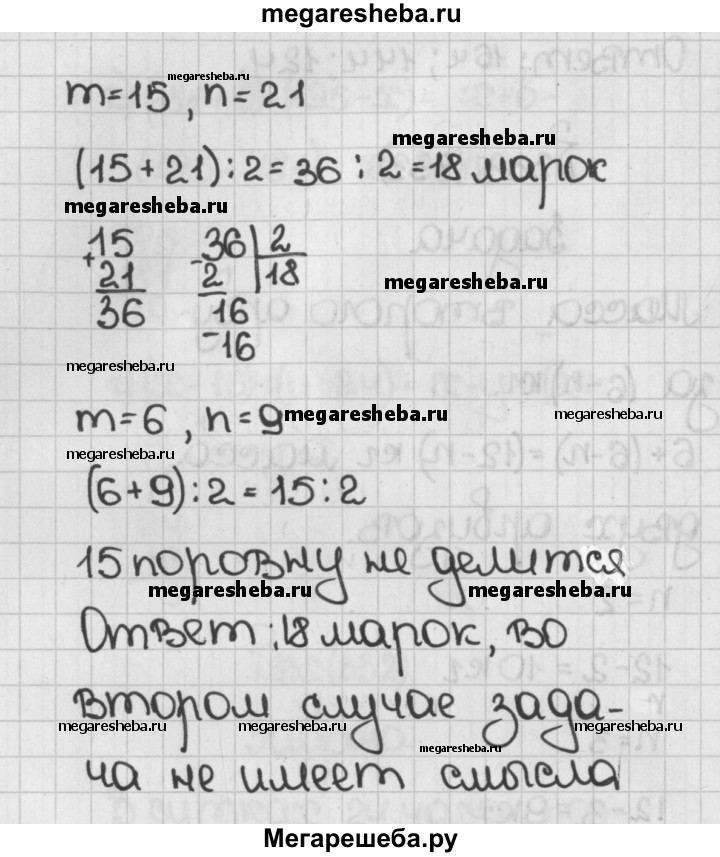 megaresheba.ru
megaresheba.ru
m=15, n=21
megaresheba.ru
(15+21):2=36:2=18 марок
megaresheba.ru
15 - 36 | 2
+ 21 2 | 18
megaresheba.ru
36 16
- 16
megaresheba.ru
m=6, n=9
megaresheba.ru
megaresheba.ru
megaresheba.ru
(6+9):2=15:2
15 поровну не делится
megaresheba.ru megaresheba.ru
Ответ: 18 марок, во
втором случае зада-
megaresheba.ru megaresheba.ru megaresheba.ru
megaresheba.ru
ча не имеет смысла
Мегарешеба.ру